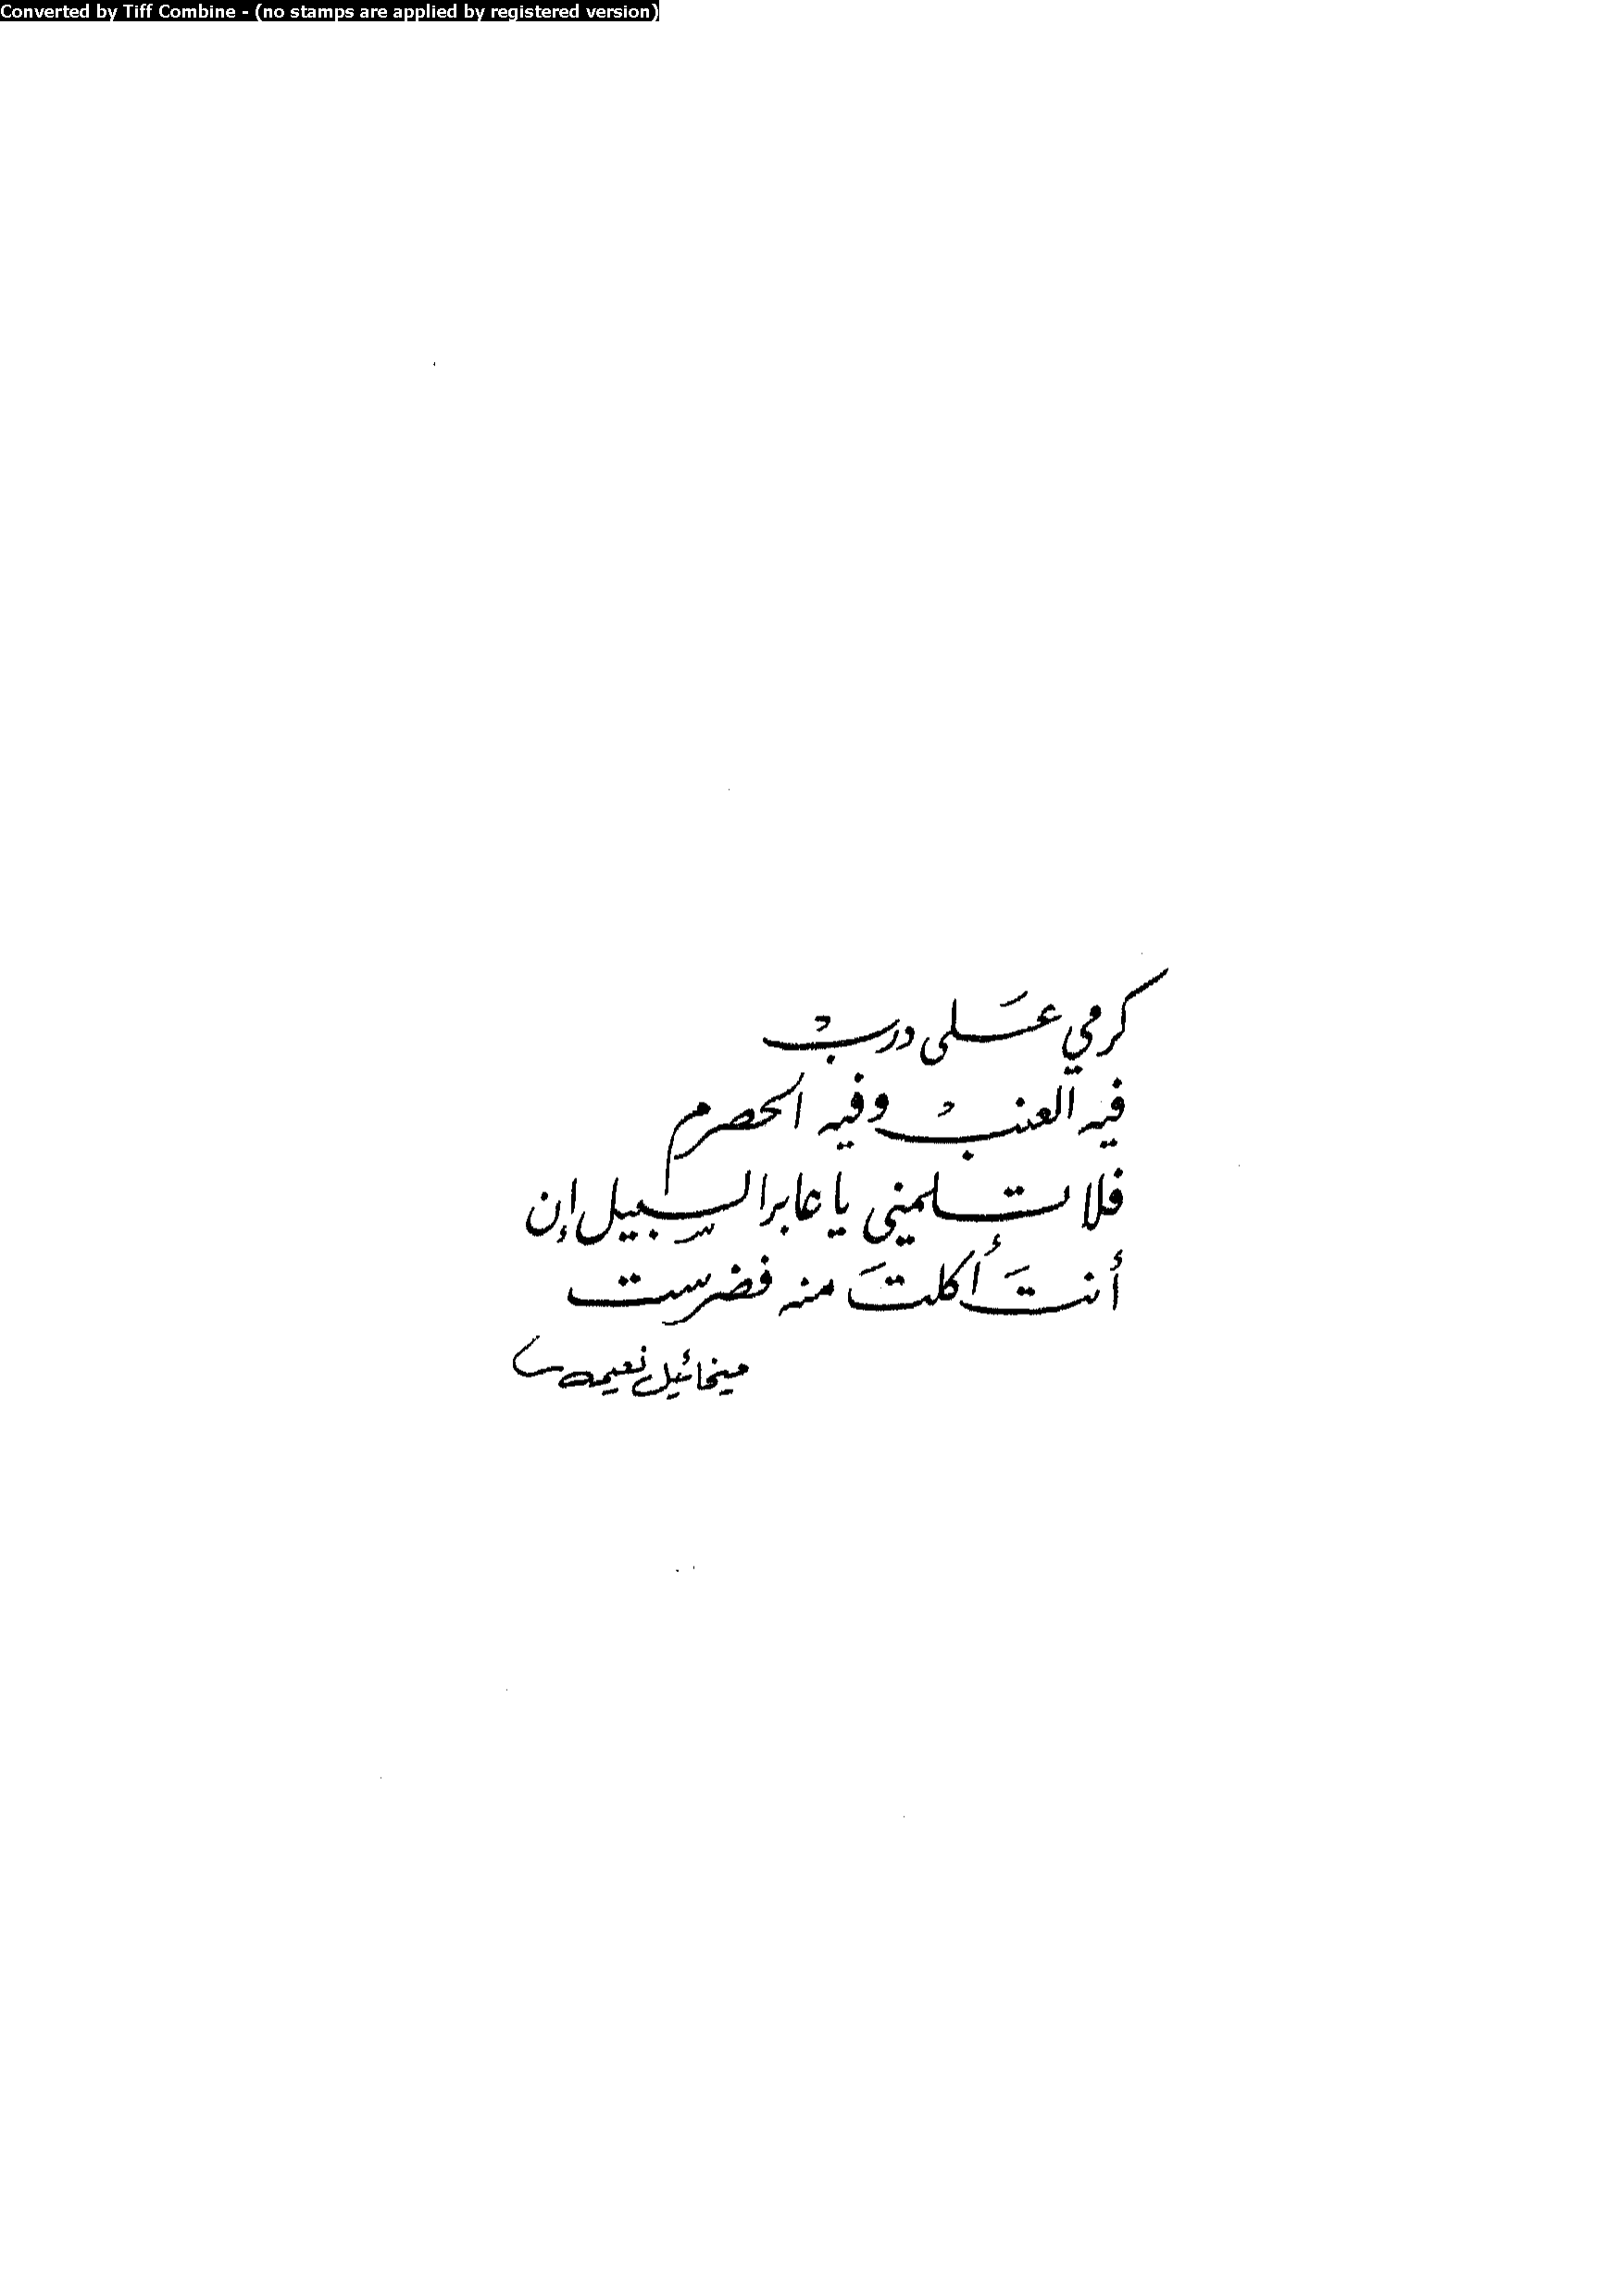 Converted by Tiff Combine - (no stamps are applied by registered version)
كرمي عَلى دربْ
فيه العنبْ وفيه الحصرم
فلا تلمني يا عابر السبيل إن
أنتَ أكلتَ منه فضرست
ميخائيل نعيمه